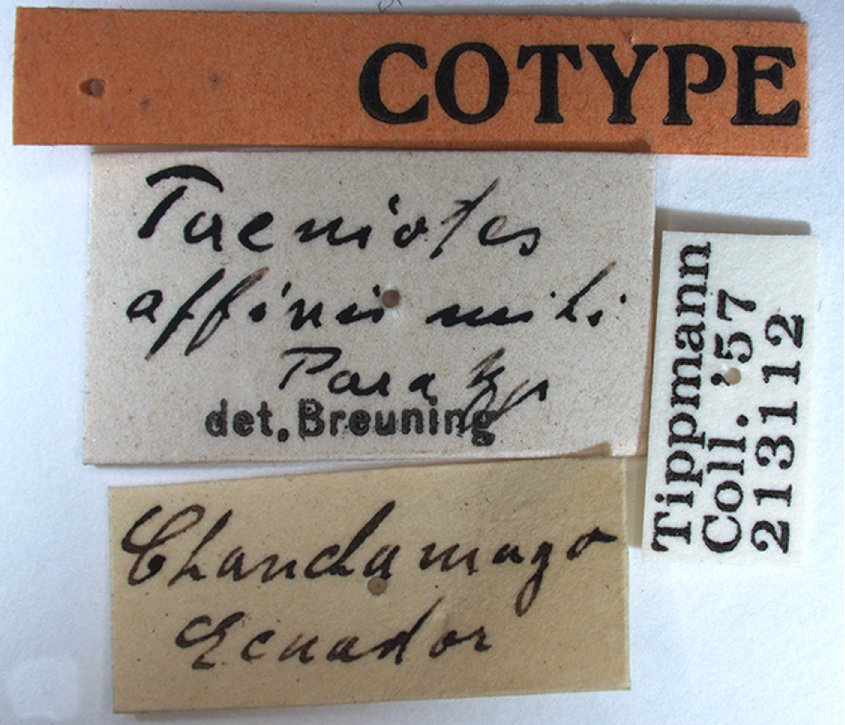 COTYPE
Taeniotes
affinis mihi
Paratyp
det. Breuning
Tippmann
Coll. '57
213112
Chanchamayo
Ecuador